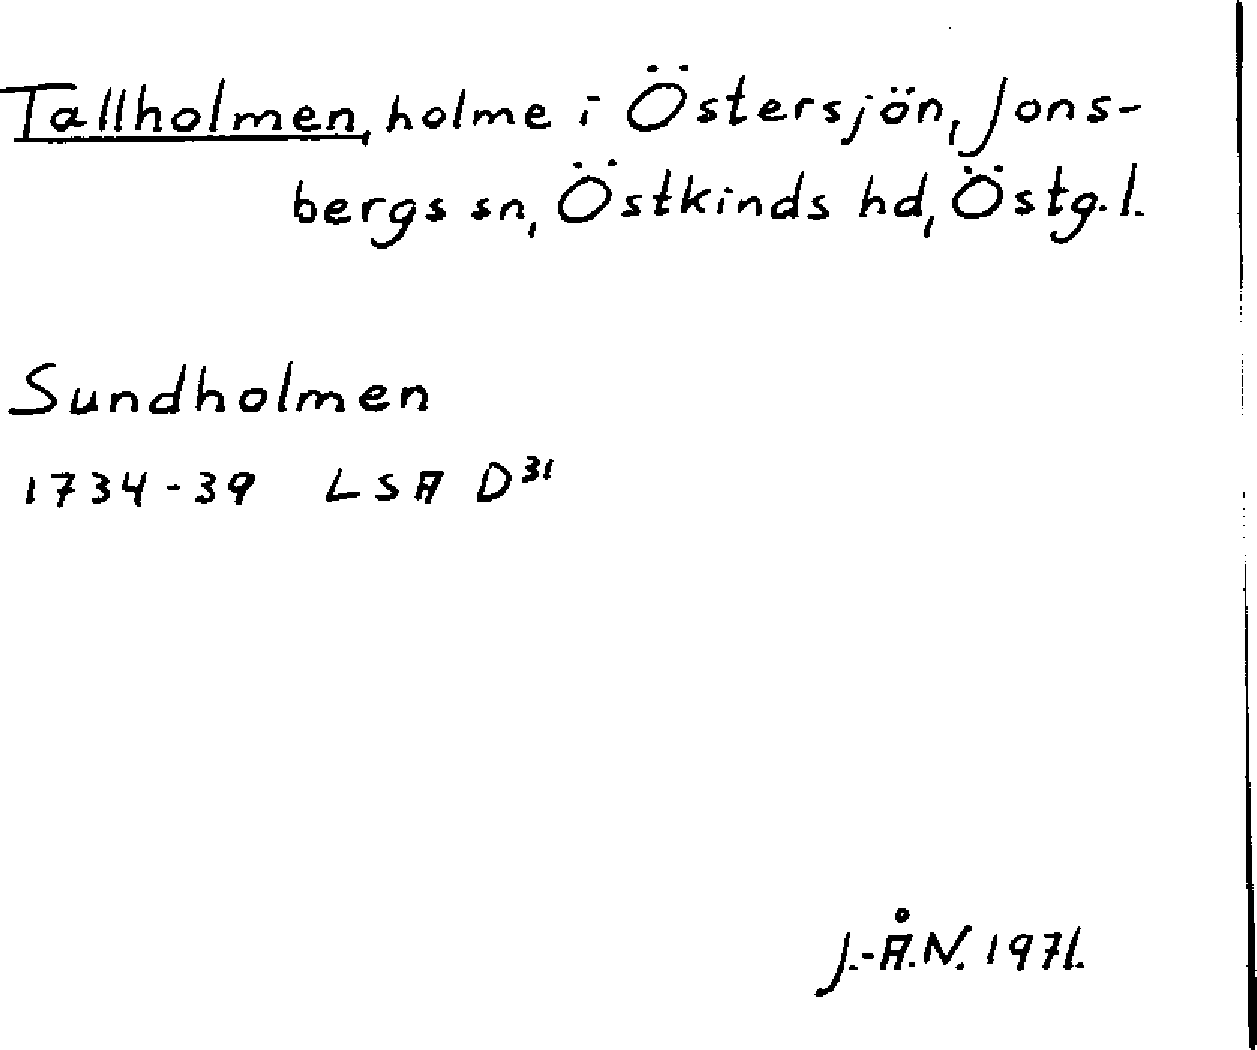 Tallholmen, holme i Östersjön, Jons-
bergs sn, Östkinds hd, Östg. l.
Sundholmen
1734-39 LSA D³¹
J.-Å.N. 1971.